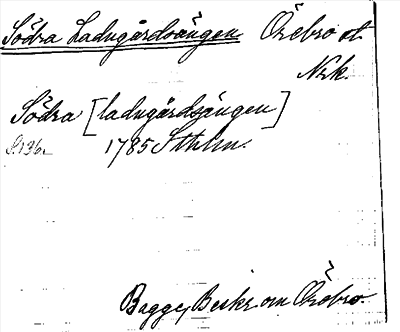 Södra Ladugårdsängen Örebro st
Nrk.
Södra [ladugårdsängen]
S. 136. 1785 Sthlm.
Bagge, Beskr. om Örebro.